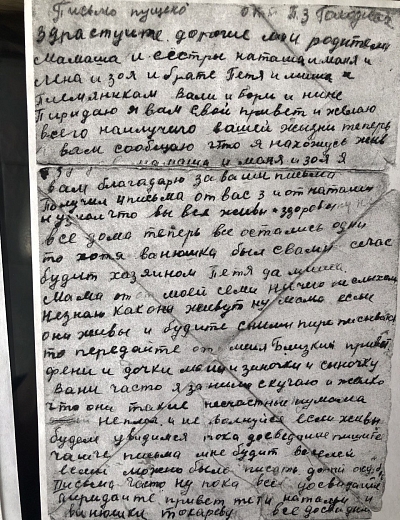 Письмо пущено от П.З
здраствуите дорогие мои родители
мамаша и сестры наташа и маня и
лена и зоя и брате Петя и миша и
Племянникам Вали и Бори и нине
Пиридаю я вам свой привет и желаю
всего наилучиго вашей жизни теперь
вам сообщаю что я нахожусь жив
мамаша и маня и зоя я
вам благодарю за ваши письма
Получил 4 письма от вас 3 и от наташи
и узнал что вы все живы и здоровы
все дома теперь все остались одни
то хотя ванюшка был свами сичас
будит хозяином Петя да миша.
Мама от моей семи ничего ни слыхом
незнаю как они живут ну мама если
они живы и будите сними пириписыватся
то передайте от меня Близкий привет
фени и дочки мани и зиночки и сыночку
Вани часто я заними скучаю и жалко
что они такие несчастные ну мама
неплач и не волнуйся если живы
будем увидимся пока досведание пишите
чаще письма мне будит веселей
если можно было писать домой
Письма часто ну пока все досвидания
пиридаите привет тети наташи и
ванюшки токареву все досвидания